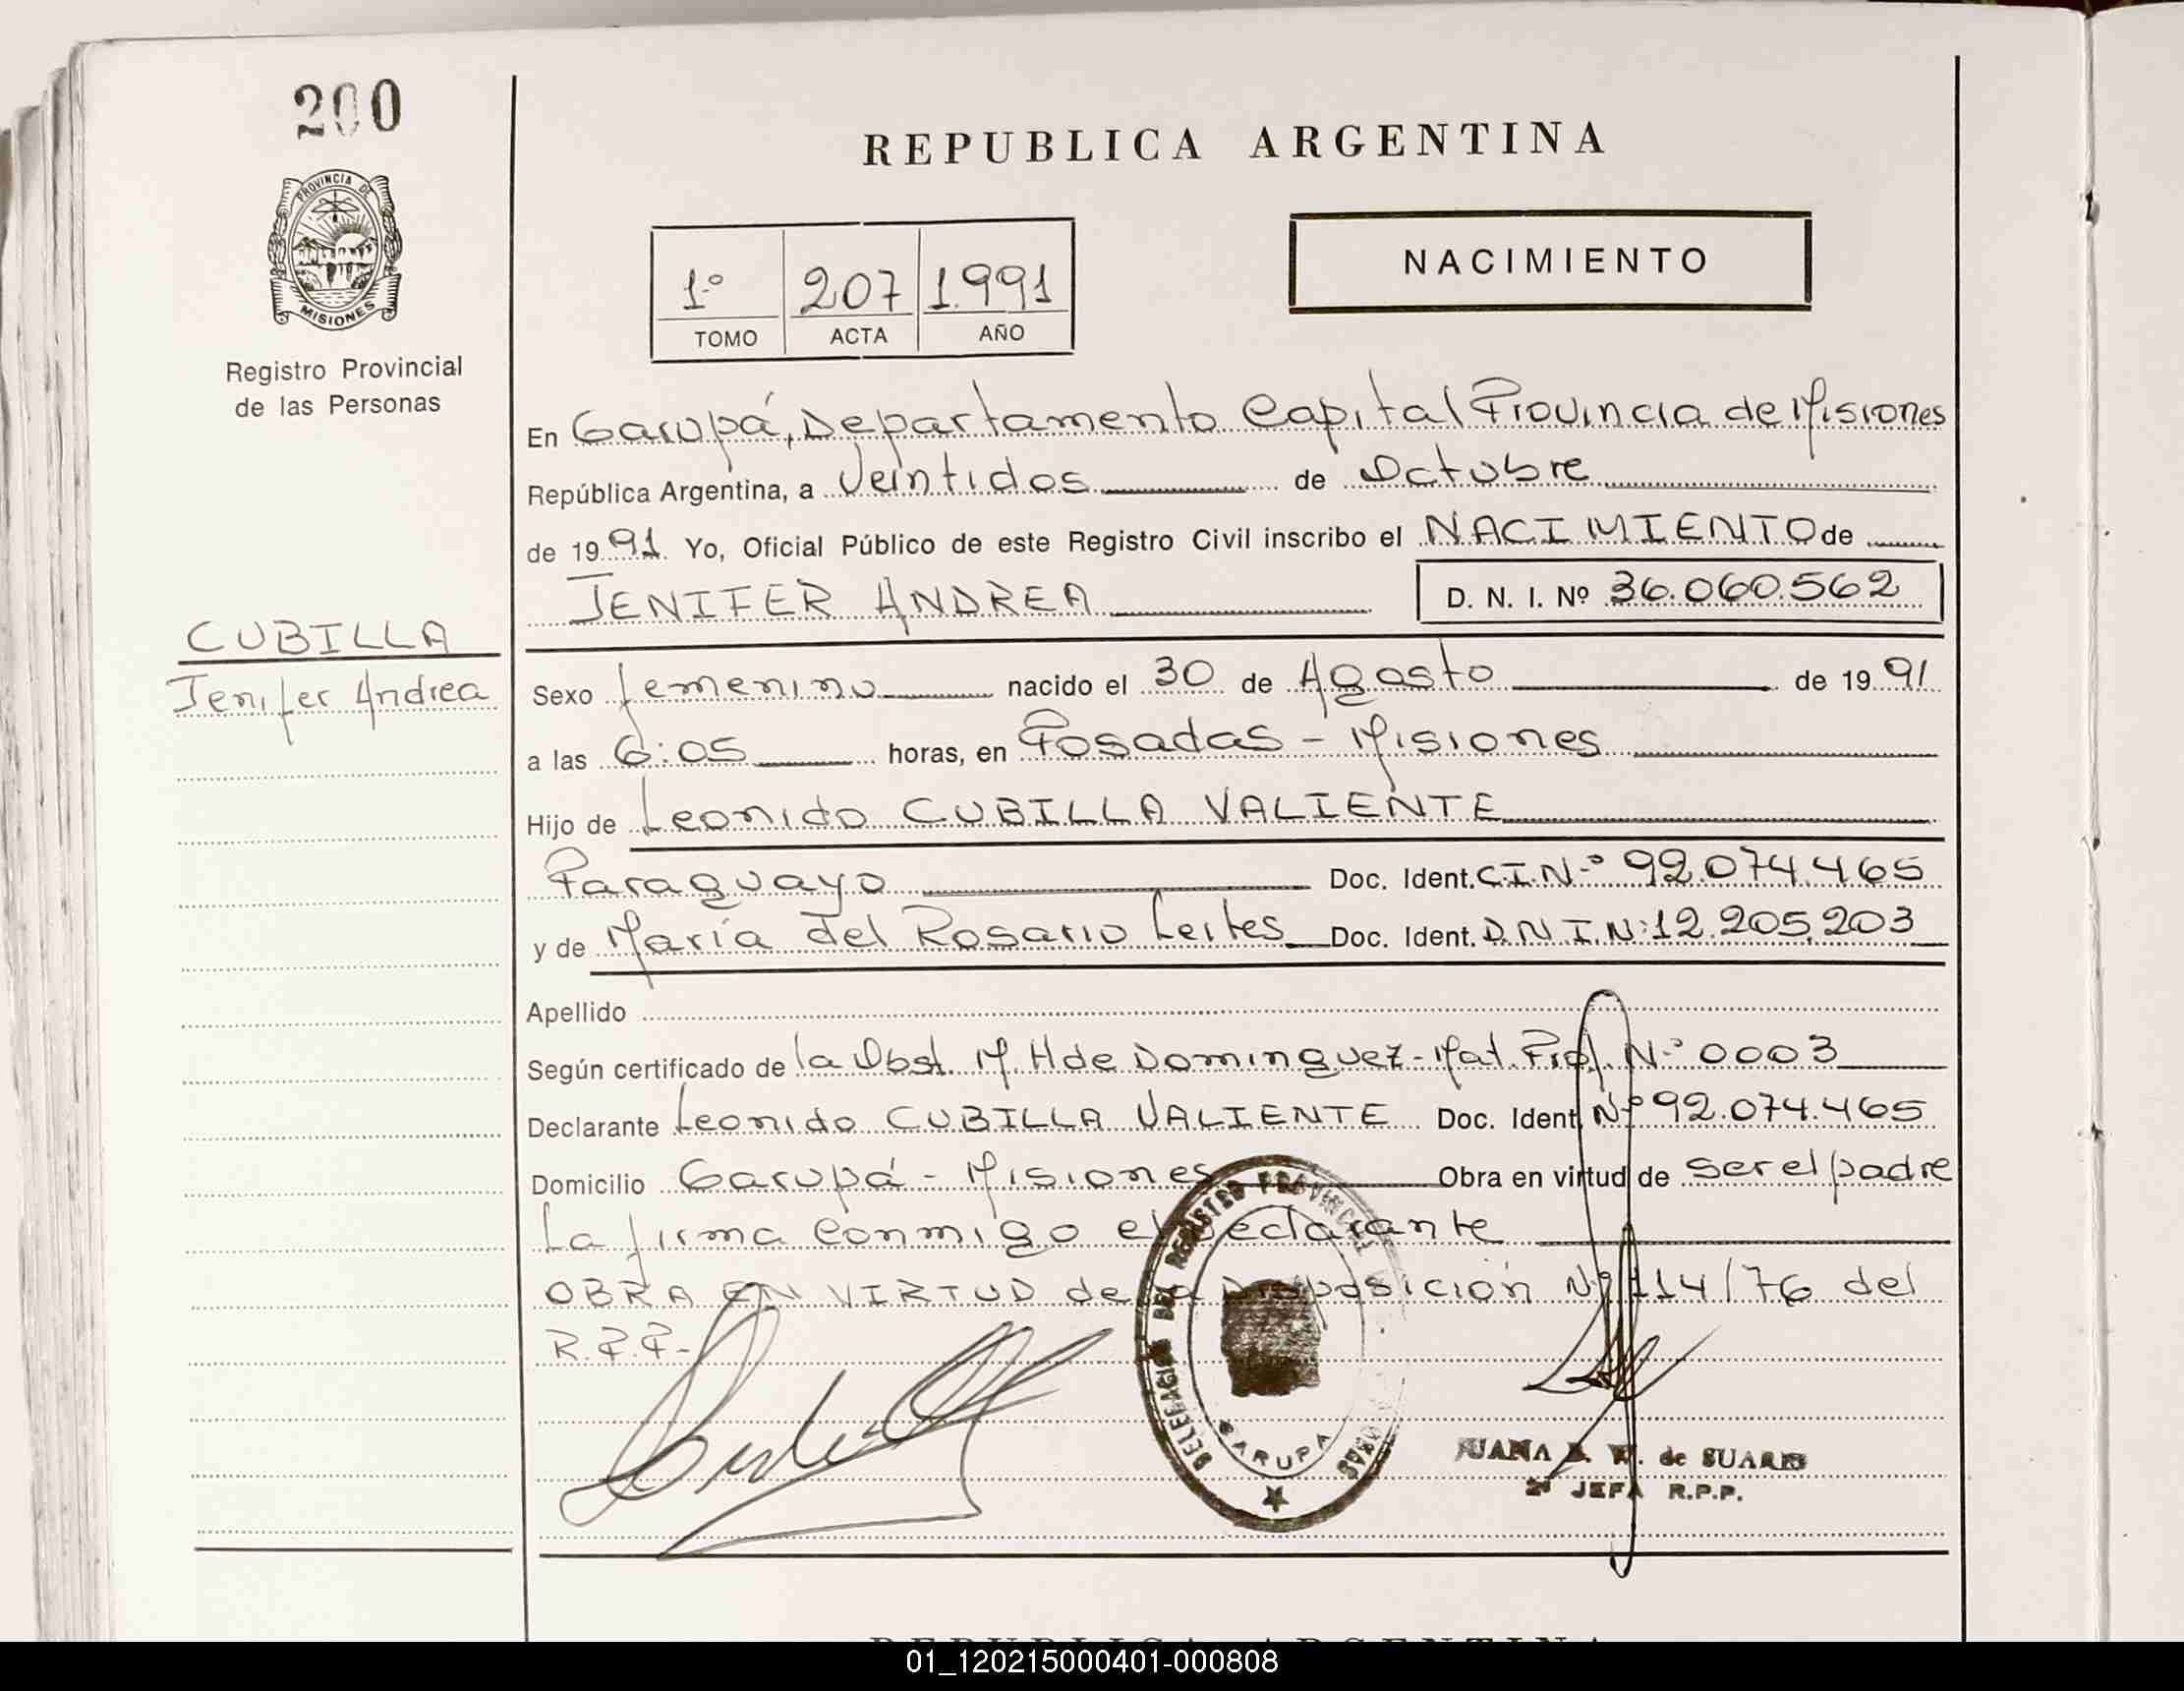 200
PROVINCIA DE
MISIONES
Registro Provincial
de las Personas
CUBILLA
Jenifer Andrea
REPUBLICA ARGENTINA
1º 207 1.991
TOMO ACTA AÑO
NACIMIENTO
En Garupá, Departamento Capital Provincia de Misiones
República Argentina, a Veintidos de Octubre
de 1991. Yo, Oficial Público de este Registro Civil inscribo el NACIMIENTO de
JENIFER ANDREA D. N. I. Nº 36.060.562
Sexo femenino nacido el 30 de Agosto de 1991
a las 6:05 horas, en Posadas - Misiones
Hijo de Leonido CUBILLA VALIENTE
Paraguayo Doc. Ident. C.I.Nº 92.074.465
y de María del Rosario Leites Doc. Ident. D.N.I.N: 12.205.203
Apellido
Según certificado de la Obst. M. H de Dominguez - Mat. Prof. Nº 0003
Declarante Leonido CUBILLA VALIENTE Doc. Ident. Nº 92.074.465
Domicilio Garupá - Misiones Obra en virtud de ser el padre
La firma conmigo el declarante
OBRA EN VIRTUD de la Disposición Nº 114/76 del
R.P.P.-
DELEGACION DEL REGISTRO PROVINCIAL
GARUPA
JUANA de SUARES
2º JEFA R.P.P.
REPUBLICA ARGENTINA
01_120215000401-000808